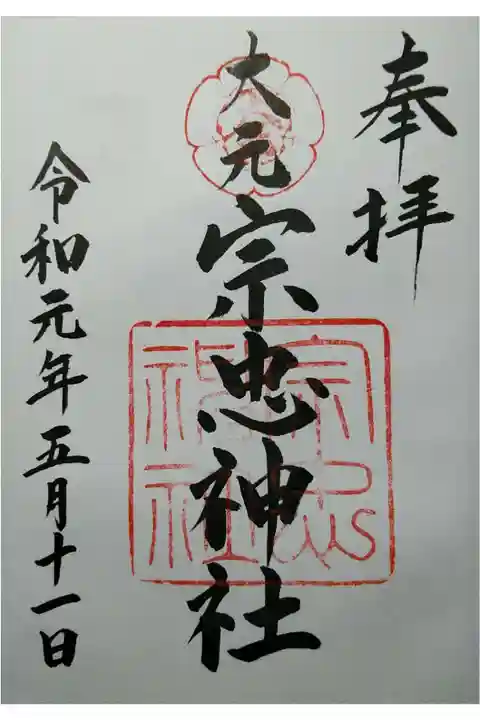 奉拝
大元
宗忠神社
宗忠
神社
令和元年五月十一日